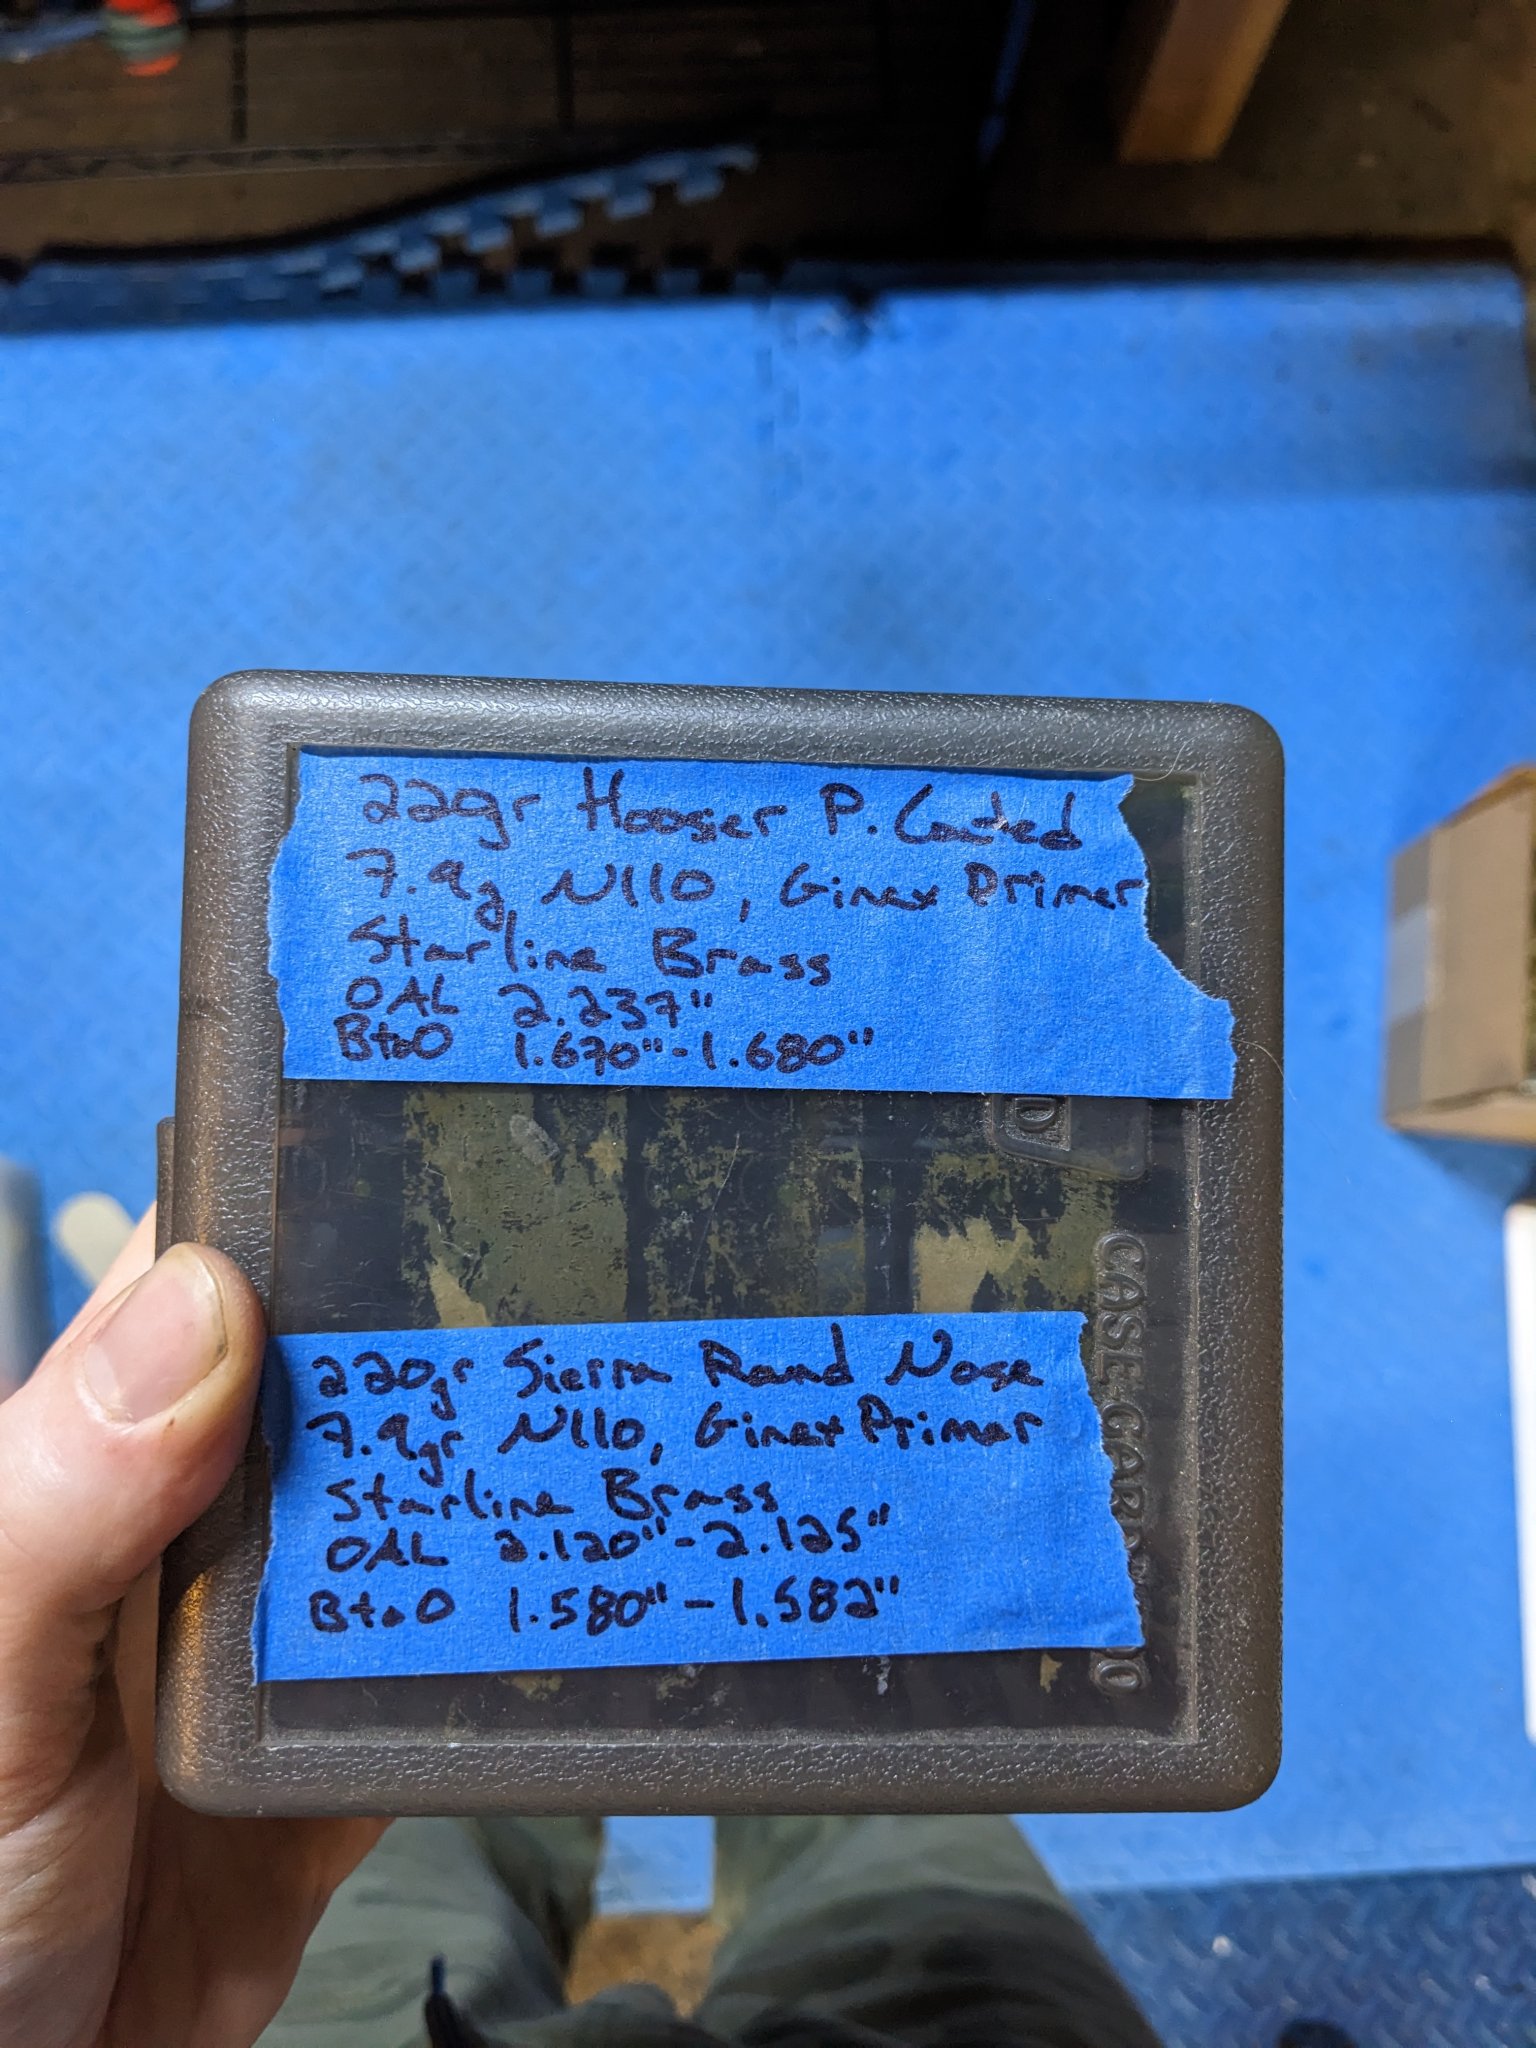 22gr Hoosier P. Coated
7.9g N110, Ginex Primer
Starline Brass
OAL 2.237"
BtoO 1.670"-1.680"
D
CASE-GARD
220gr Sierra Round Nose
7.9gr N110, Ginex Primer
Starline Brass
OAL 2.120"-2.125"
BtoO 1.580"-1.582"